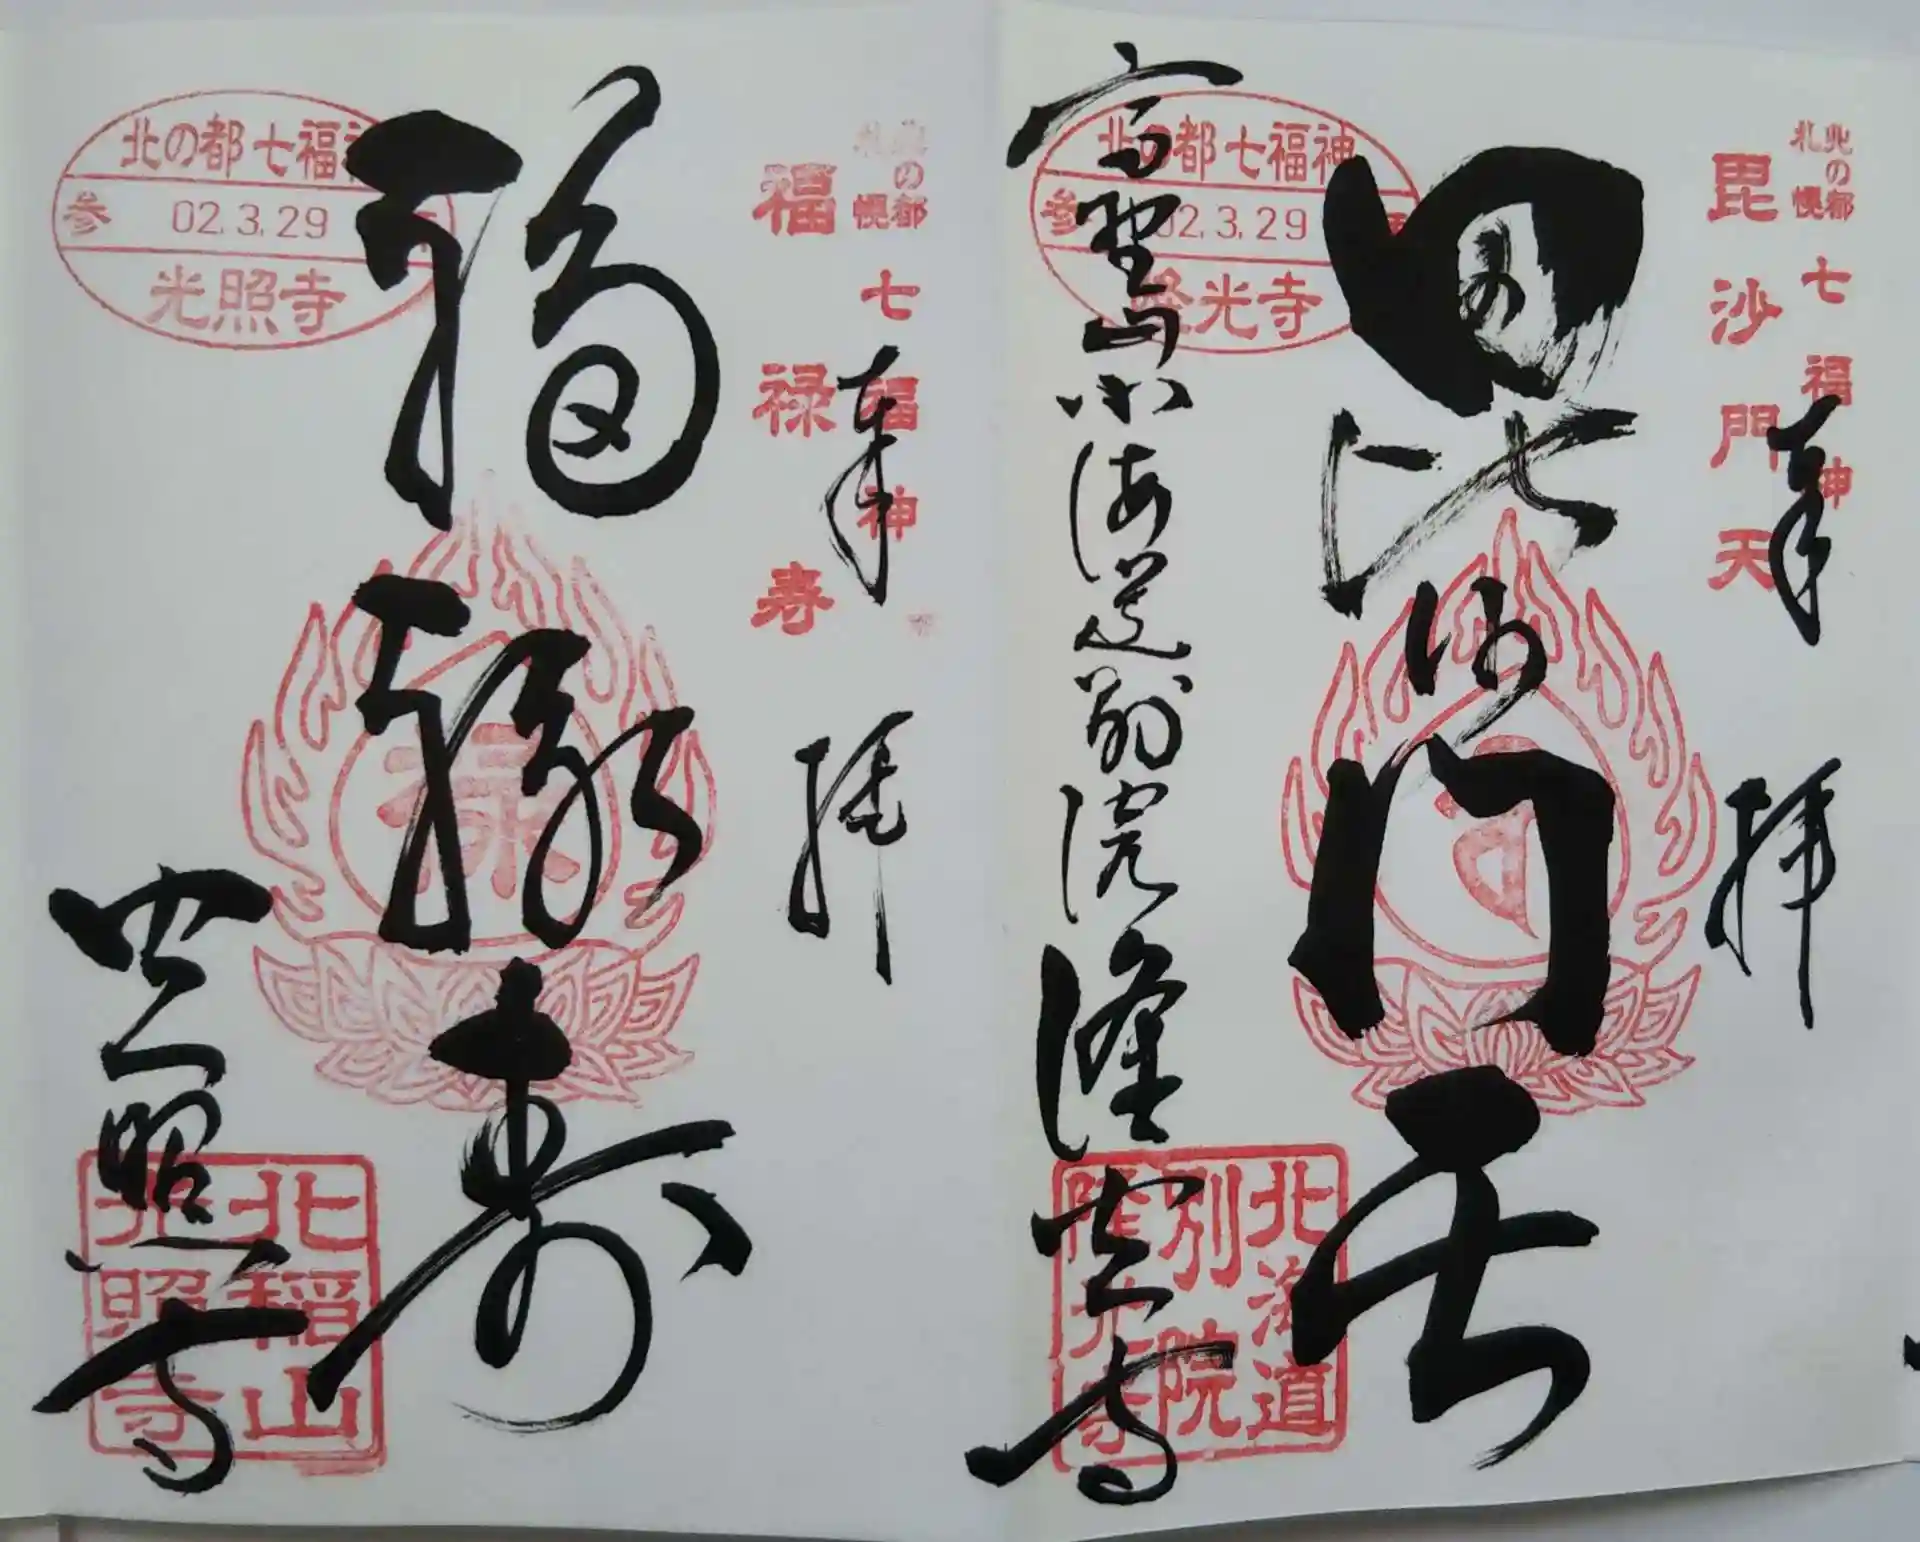 北の都
札幌
七福神
毘沙門天
奉拝
毘沙門天
北の都七福神
参
02.3.29
隆光寺
高野山北海道別院隆光寺
北海道
別院
隆光寺
北の都
札幌
七福神
福禄寿
奉拝
福禄寿
禄
北の都七福神
参
02.3.29
光照寺
光照寺
北稲山
光照寺